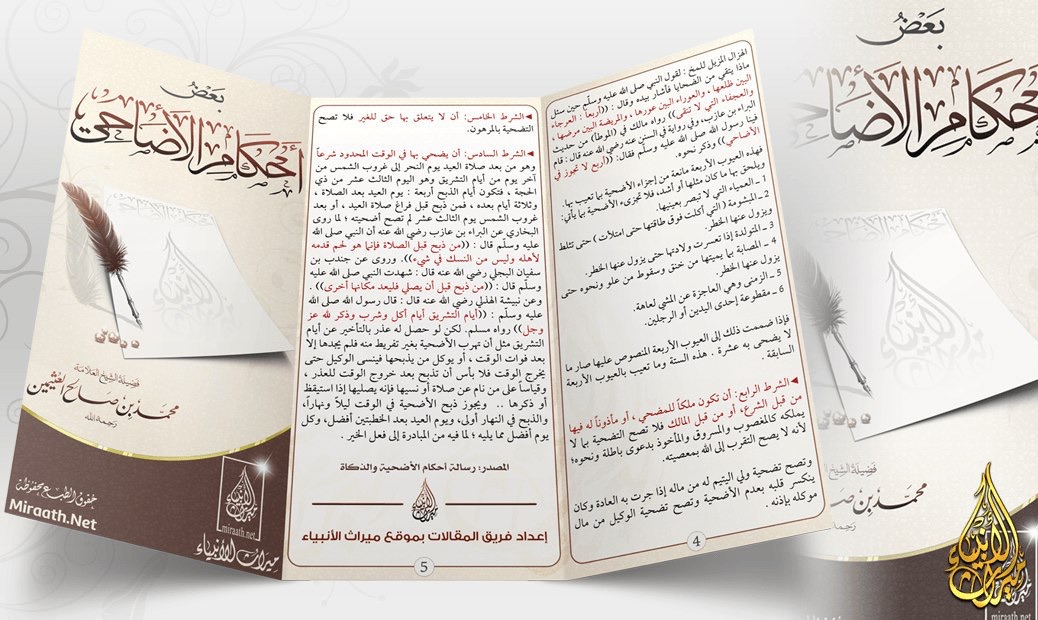 بَعَضُ
أحكام الأضاحي
فضيلة الشيخ العلامة
محمد بن صالح العثيمين
رحمه الله
حقوق الطبع محفوظة
Miraath.Net
ميراث الأنبياء
miraath.net
ميراث الأنبياء
الهزال المزيل للمخ : لقول النبي صلى الله عليه وسلّم حين سئل
ماذا يتقي من الضحايا فأشار بيده وقال : ((أربعاً : العرجاء
البين ظلعها ، والعوراء البين عورها ، والمريضة البين مرضها ،
والعجفاء التي لا تنقى)) رواه مالك في (الموطأ) من حديث
البراء بن عازب، وفي رواية في السنن عنه رضي الله عنه قال : قام
فينا رسول الله صلى الله عليه وسلّم فقال: ((أربع لا تجوز في
الأضاحي)) وذكر نحوه.
فهذه العيوب الأربعة مانعة من إجزاء الأضحية بما تعيب بها،
ويلحق بها ما كان مثلها أو أشد، فلا تجزىء الأضحية بما يأتي:
1 ـ العمياء التي لا تبصر بعينيها.
2 ـ المبشومة (التي أكلت فوق طاقتها حتى امتلأت) حتى تثلط
ويزول عنها الخطر.
3 ـ المتولدة إذا تعسرت ولادتها حتى يزول عنها الخطر.
4 ـ المصابة بما يميتها من خنق وسقوط من علو ونحوه حتى
يزول عنها الخطر.
5 ـ الزمنى وهي العاجزة عن المشي لعاهة.
6 ـ مقطوعة إحدى اليدين أو الرجلين.
فإذا ضممت ذلك إلى العيوب الأربعة المنصوص عليها صار ما
لا يضحى به عشرة . هذه الستة وما تعيب بالعيوب الأربعة
السابقة .
◄الشرط الرابع: أن تكون ملكاً للمضحي ، أو مأذوناً له فيها
من قبل الشرع، أو من قبل المالك فلا تصح التضحية بما لا
يملكه كالمغصوب والمسروق والمأخوذ بدعوى باطلة ونحوه؛
لأنه لا يصح التقرب إلى الله بمعصيته.
وتصح تضحية ولي اليتيم له من ماله إذا جرت به العادة وكان
ينكسر قلبه بعدم الأضحية وتصح تضحية الوكيل من مال
موكله بإذنه .
4
◄الشرط الخامس: أن لا يتعلق بها حق للغير فلا تصح
التضحية بالمرهون.
◄الشرط السادس: أن يضحي بها في الوقت المحدود شرعاً
وهو من بعد صلاة العيد يوم النحر إلى غروب الشمس من
آخر يوم من أيام التشريق وهو اليوم الثالث عشر من ذي
الحجة ، فتكون أيام الذبح أربعة : يوم العيد بعد الصلاة ،
وثلاثة أيام بعده ، فمن ذبح قبل فراغ صلاة العيد ، أو بعد
غروب الشمس يوم الثالث عشر لم تصح أضحيته ؛ لما روى
البخاري عن البراء بن عازب رضي الله عنه أن النبي صلى الله
عليه وسلّم قال : ((من ذبح قبل الصلاة فإنما هو لحم قدمه
لأهله وليس من النسك في شيء)). وروى عن جندب بن
سفيان البجلي رضي الله عنه قال : شهدت النبي صلى الله عليه
وسلّم قال : ((من ذبح قبل أن يصلي فليعد مكانها أخرى)) .
وعن نبيشة الهذلي رضي الله عنه قال : قال رسول الله صلى الله
عليه وسلّم : ((أيام التشريق أيام أكل وشرب وذكر لله عز
وجل)) رواه مسلم. لكن لو حصل له عذر بالتأخير عن أيام
التشريق مثل أن تهرب الأضحية بغير تفريط منه فلم يجدها إلا
بعد فوات الوقت ، أو يوكل من يذبحها فينسى الوكيل حتى
يخرج الوقت فلا بأس أن تذبح بعد خروج الوقت للعذر ،
وقياساً على من نام عن صلاة أو نسيها فإنه يصليها إذا استيقظ
أو ذكرها .. ويجوز ذبح الأضحية في الوقت ليلاً ونهاراً،
والذبح في النهار أولى، ويوم العيد بعد الخطبتين أفضل، وكل
يوم أفضل مما يليه ؛ لما فيه من المبادرة إلى فعل الخير .
المصدر: رسالة أحكام الأضحية والذكاة
ميراث الأنبياء
إعداد فريق المقالات بموقع ميراث الأنبياء
5
بَعَضُ
أحكام الأضاحي
فضيلة الشيخ
محمد بن
ميراث الأنبياء
miraath.net